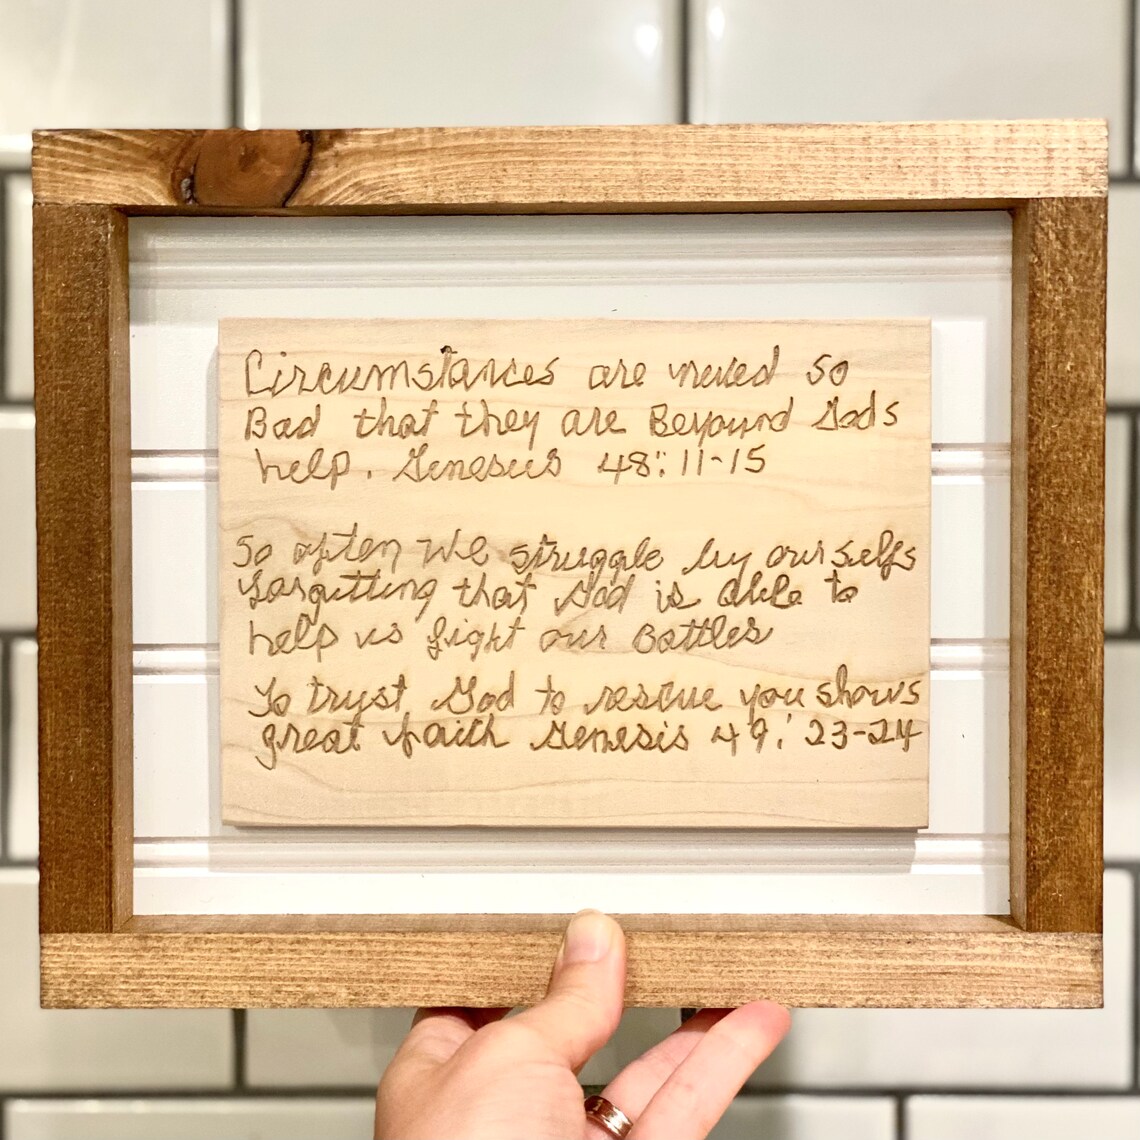 Circumstances are neved so
Bad that they are Beyound Gods
help. Genesis 48:11-15
So often we struggle by ourselfs
forgetting that God is able to
help us fight our Battles
To tryst God to rescue you shows
great faith Genesis 49:23-24